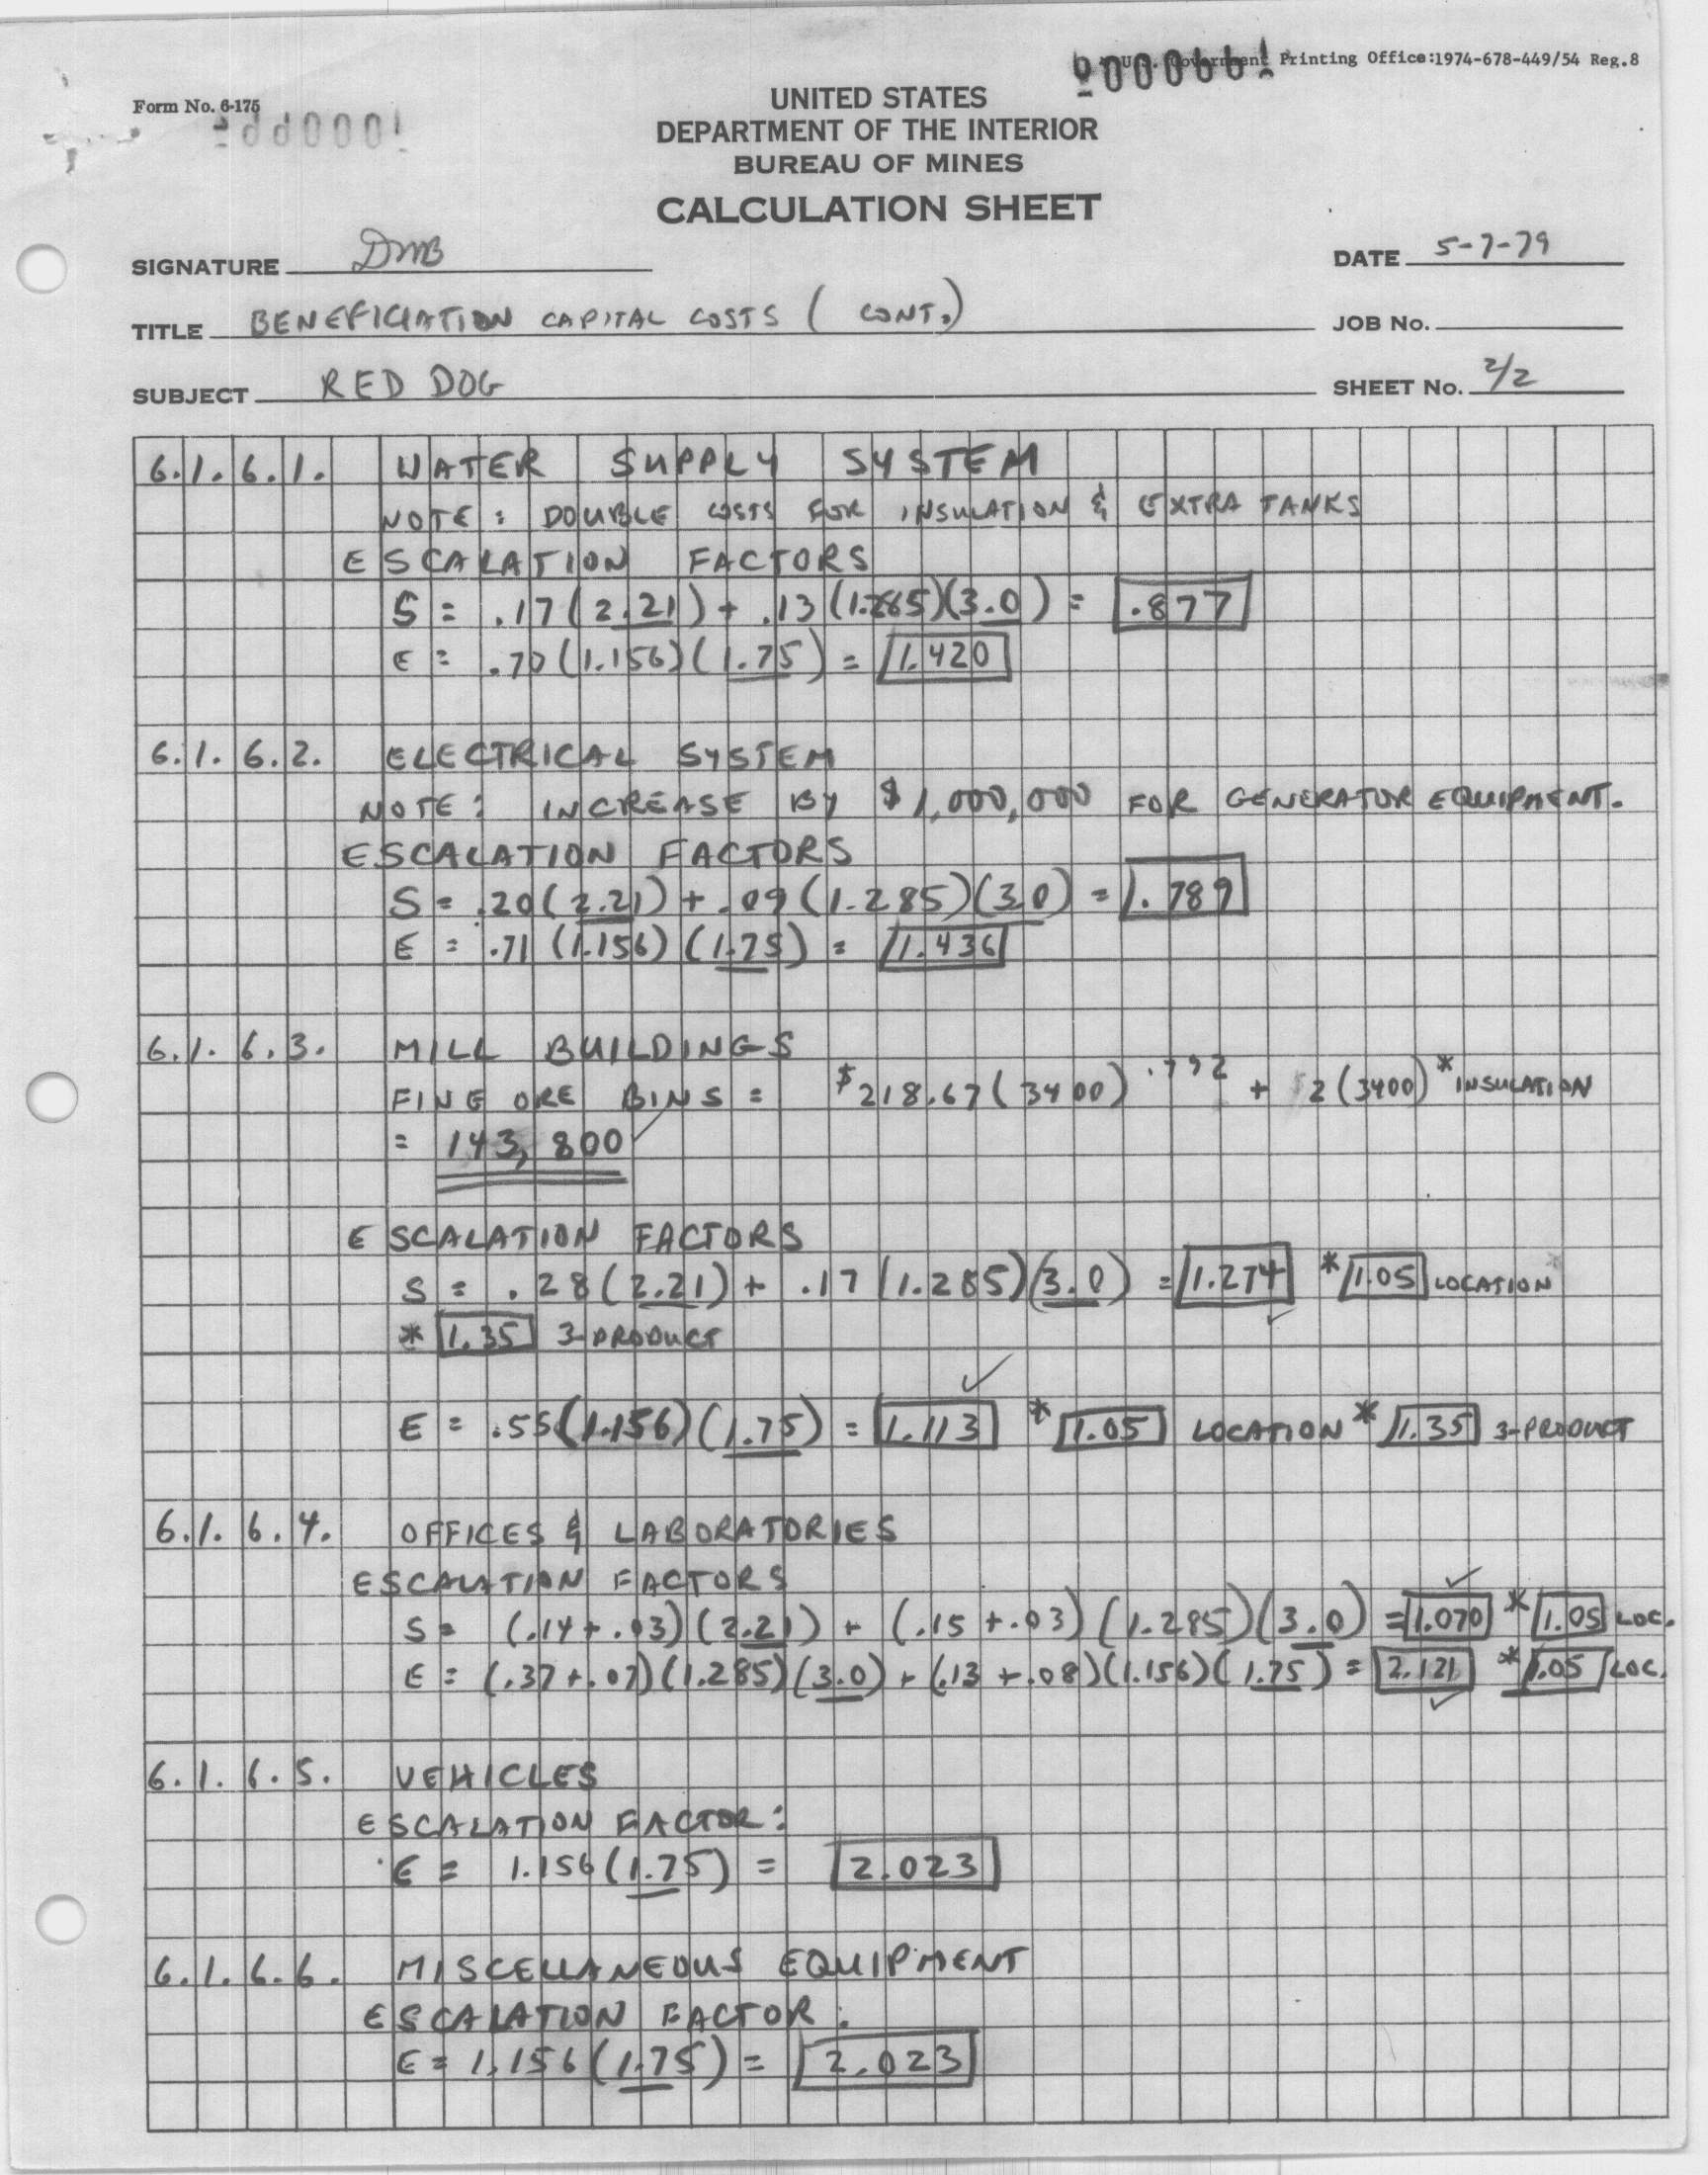 U.S. Government Printing Office:1974-678-449/54 Reg.8
Form No. 6-175
UNITED STATES
DEPARTMENT OF THE INTERIOR
BUREAU OF MINES
CALCULATION SHEET
SIGNATURE DMB DATE 5-7-79
TITLE BENEFICIATION CAPITAL COSTS (CONT.) JOB No.
SUBJECT RED DOG SHEET No. 2/2
6.1.6.1. WATER SUPPLY SYSTEM
NOTE: DOUBLE COSTS FOR INSULATION & EXTRA TANKS
ESCALATION FACTORS
S = .17(2.21) + .13(1.285)(3.0) = .877
E = .70(1.156)(1.75) = 1.420
6.1.6.2. ELECTRICAL SYSTEM
NOTE: INCREASE BY $1,000,000 FOR GENERATOR EQUIPMENT.
ESCALATION FACTORS
S = .20(2.21) + .09(1.285)(3.0) = .789
E = .71(1.156)(1.75) = 1.436
6.1.6.3. MILL BUILDINGS
FINE ORE BINS = $218.67(3400).792 + 2(3400)* INSULATION
= 143,800
ESCALATION FACTORS
S = .28(2.21) + .17(1.285)(3.0) = 1.274 * 1.05 LOCATION
* 1.35 3-PRODUCT
E = .55(1.156)(1.75) = 1.113 * 1.05 LOCATION * 1.35 3-PRODUCT
6.1.6.4. OFFICES & LABORATORIES
ESCALATION FACTORS
S = (.14 + .03)(2.21) + (.15 + .03)(1.285)(3.0) = 1.070 * 1.05 LOC.
E = (.37 + .07)(1.285)(3.0) + (.13 + .08)(1.156)(1.75) = 2.121 * 1.05 LOC.
6.1.6.5. VEHICLES
ESCALATION FACTOR:
E = 1.156(1.75) = 2.023
6.1.6.6. MISCELLANEOUS EQUIPMENT
ESCALATION FACTOR:
E = 1.156(1.75) = 2.023